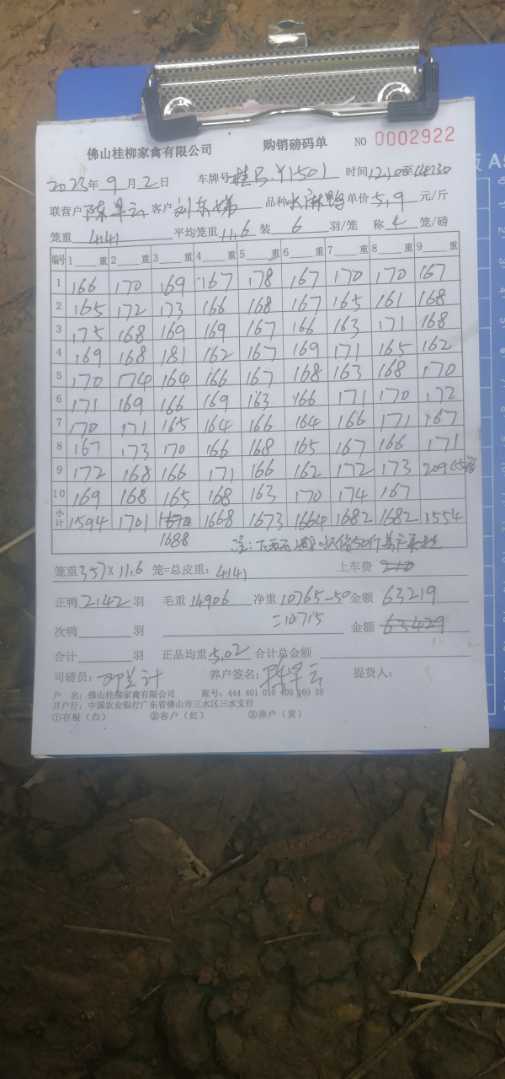 佛山桂柳家禽有限公司 购销磅码单 NO 0002922
2023年 9月 2日 车牌号 桂 Y1501 时间
联营户 客户 品种 单价 5,9 元/斤
笼重 4141 平均笼重 11,6 装 6 羽/笼 称 4 笼/磅
编号 1 重 2 重 3 重 4 重 5 重 6 重 7 重 8 重 9 重
1 166 170 169 167 178 167 170 170 167
2 165 172 173 166 168 167 165 161 168
3 175 168 169 169 167 166 163 171 168
4 169 168 181 162 167 169 171 165 162
5 170 174 164 166 167 168 163 168 170
6 171 169 166 169 163 166 171 170 172
7 170 171 165 164 166 164 166 171 167
8 167 173 170 166 168 165 167 166 171
9 172 168 166 171 166 162 172 173 209
10 169 168 165 168 163 170 174 167
小计 1594 1701 1668 1673 1664 1682 1682 1554
1688
注:
笼重 357×11.6 笼=总皮重: 4141 上车费
正鸭 2142 羽 毛重 14906 净重 10765-50 金额 63219
=10715
次鸭 羽 金额 63429
合计 羽 正品均重 5,02 合计总金额
司磅员: 养户签名: 提货人:
户 名: 佛山桂柳家禽有限公司 账号:
开户行: 中国农业银行广东省佛山市三水区三水支行
①存根(白) ②客户(红) ③养户(黄)